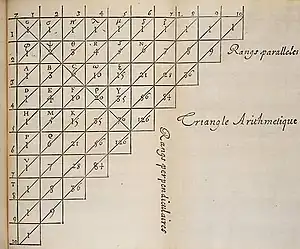 σ π λ μ
1 1 1 1 1 1 1 1 1 1
φ ψ θ R S N
1 2 3 4 5 6 7 8 9
Rangs paralleles
A B C ω ξ
1 3 6 10 15 21 28 36
D E F ρ Y
1 4 10 20 35 56 84
Triangle Arithmetique
H M K
1 5 15 35 70 126
P Q
1 6 21 56 126
V
1 7 28 84
1 8 36
1 9
1
Rangs perpendiculaires